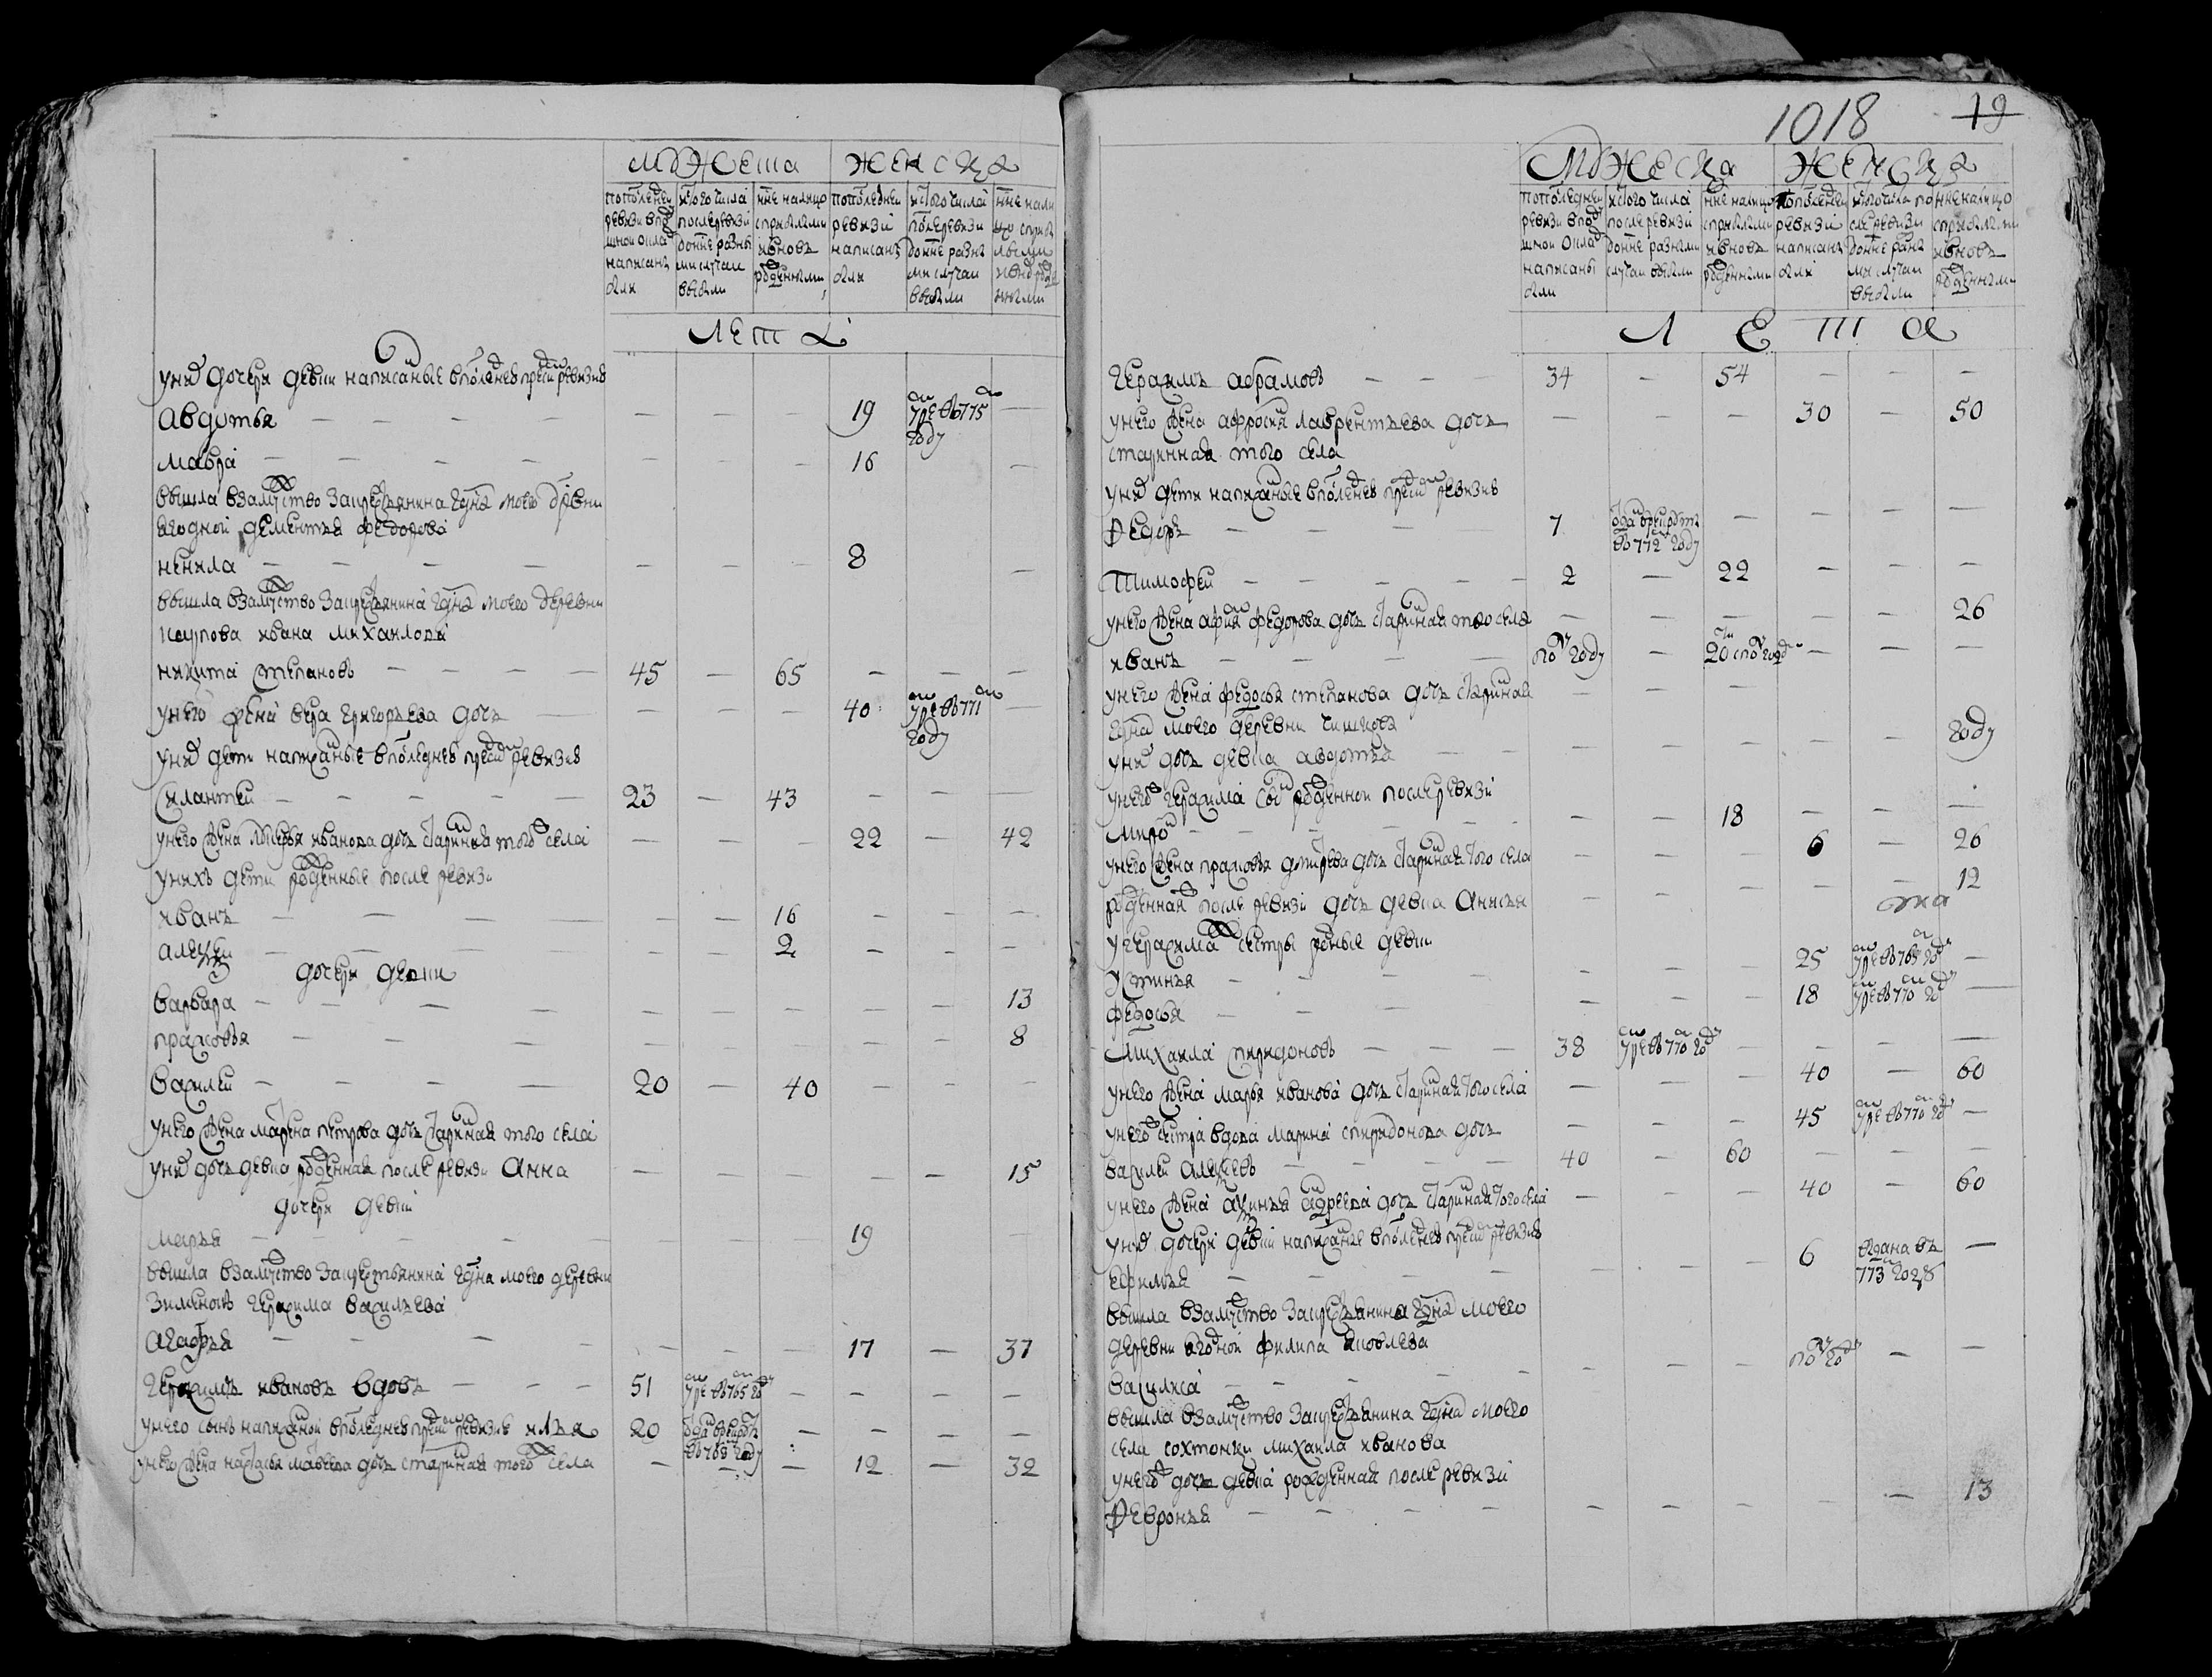 мужеска женска
попоследнеи ревизи вподушнои окладъ написаны были
истого числа после ревизи доныне разными случаи выбыли
ныне налицо сприбылыми ивновь рожденными
попоследнеи ревизи написаны были
истого числа после ревизи доныне разными случаи выбыли
ныне налицо сприбылыми ивновь рожденными
лета
уних дочери девки написаные впоследнеи пред сим ревизии
авдотья — — — — — — — 19 умре въ 775 году —
мавра — — — — — — — 16 —
вышла взамужство закрестьянина едина моего древни
ягодной дементья федорова
ненила — — — — — — — 8 —
вышла взамужство закрестьянина едина моего деревни
ивана михаилова
никита степановъ — — — — 45 — 65 — — —
унего жена вера григорьева дочь — — — — 40 умре въ 771 году —
уних дети написаные впоследнеи пред сим ревизии
силантеи — — — — 23 — 43 — — —
унего жена ивановa дочь старинная того села — — — 22 — 42
унихъ дети рожденные после ревизи
иванъ — — — — — — 16 — — —
алексеи — — — — — 2 — — —
дочери девки
варвара — — — — — — — — — 13
прасковья — — — — — — — — 8
василеи — — — — 20 — 40 — — —
унего жена марина петрова дочь старинная того села
уних дочь девка рожденная после ревизи анна — — — — — 15
дочери девки
марья — — — — — — — 19 —
вышла взамужство закрестьянина едина моего деревни
зименокъ герасима васильева
агафья — — — — — — — 17 — 37
герасимъ ивановъ вдовъ — — — 51 умре въ 765 году — — — —
унего сынъ написанои впоследнеи пред сим ревизии илья 20 отдан в рекруты въ 769 году — — — —
унего жена настасья дочь старинная того села — — — 12 — 32
1018 19
мужеска женска
попоследнеи ревизи вподушнои окладъ написаны были
истого числа после ревизи доныне разными случаи выбыли
ныне налицо сприбылыми ивновь рожденными
попоследнеи ревизи написаны были
истого числа после ревизи доныне разными случаи выбыли
ныне налицо сприбылыми ивновь рожденными
лета
герасимъ абрамовъ — — — 34 — 54 — — —
унего жена афросинья лаврентьева дочь — — — 30 — 50
старинная того села
уних дети написаные впоследнеи пред сим ревизии
федоръ — — — 7 отдан в рекруты въ 772 году — — — —
тимофеи — — — — 2 — 22 — — —
унего жена федорова дочь старинная того села — — — — — 26
иванъ — — — — полугоду — 20 с полугодом — — —
унего жена федосья степанова дочь старинная — — —
едина моего деревни
уних дочь девка авдотья — — — — — — — году
унего герасима сын рожденнои после ревизи
миронъ — — — — — — 18 — — —
унего жена прасковья дочь старинная того села — — — 6 — 26
рожденная после ревизи дочь девка анисья — — — — — 12
угерасима сестры родные девки
устинья — — — — — — 25 умре въ 765 году —
федосья — — — — — — 18 умре въ 770 году —
михаила спиридоновъ — — — 38 умре въ 770 году — — — —
унего жена марья иванова дочь старинная того села — — — 40 — 60
унего сестра вдова марина спиридонова дочь — — — 45 умре въ 770 году —
василеи алексеевъ — — — — 40 — 60 — — —
унего жена аксинья андреева дочь старинная того села — — — 40 — 60
уних дочери девки написаные впоследнеи пред сим ревизии
ефимья — — — — — — — 6 выдана въ 773 году —
вышла взамужство закрестьянина едина моего
деревни ягодной филипа яковлева
василиса — — — — — — — полугоду — —
вышла взамужство закрестьянина едина моего
села сохтонки михаила иванова
унего дочь девка рожденная после ревизи
февронья — — — — — — — — — 13